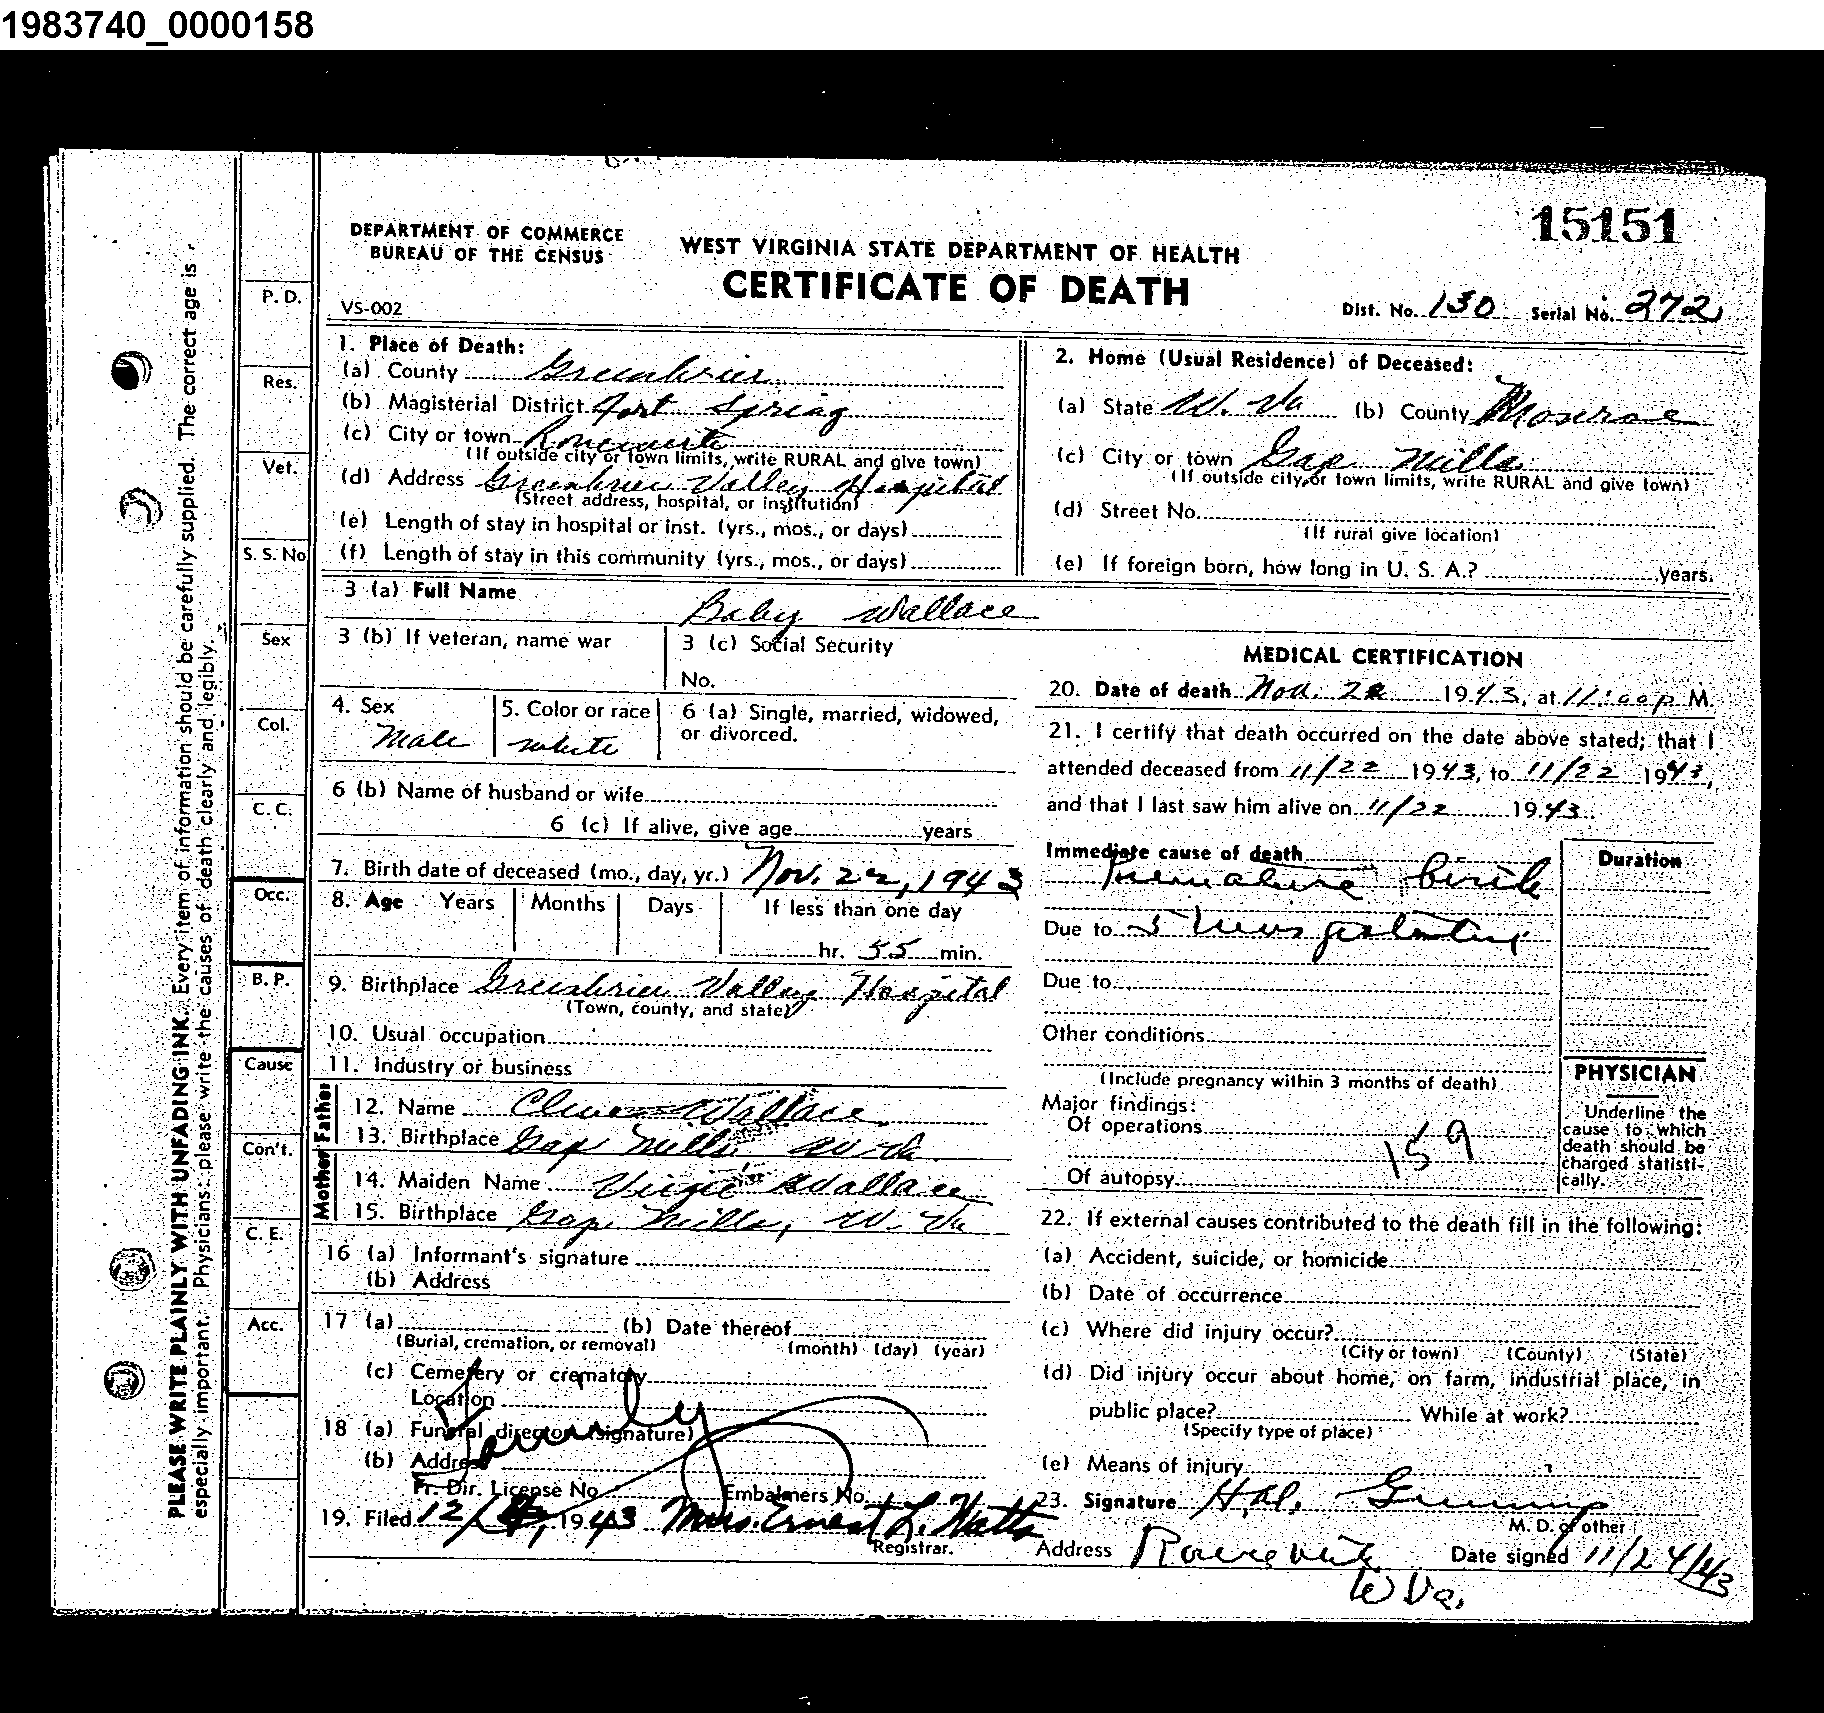 1983740_0000158
15151
DEPARTMENT OF COMMERCE
BUREAU OF THE CENSUS
WEST VIRGINIA STATE DEPARTMENT OF HEALTH
CERTIFICATE OF DEATH
VS-002
Dist. No. 130 Serial No. 272
1. Place of Death:
(a) County Greenbrier
(b) Magisterial District Fort Spring
(c) City or town Ronceverte
(If outside city or town limits, write RURAL and give town)
(d) Address Greenbrier Valley Hospital
(Street address, hospital, or institution)
(e) Length of stay in hospital or inst. (yrs., mos., or days)
(f) Length of stay in this community (yrs., mos., or days)
2. Home (Usual Residence) of Deceased:
(a) State W. Va (b) County Monroe
(c) City or town Gap Mills
(If outside city, or town limits, write RURAL and give town)
(d) Street No.
(If rural give location)
(e) If foreign born, how long in U. S. A.? years.
3 (a) Full Name Baby Wallace
3 (b) If veteran, name war
3 (c) Social Security
No.
4. Sex
Male
5. Color or race
white
6 (a) Single, married, widowed,
or divorced.
6 (b) Name of husband or wife
6 (c) If alive, give age years
7. Birth date of deceased (mo., day, yr.) Nov. 22, 1943
8. Age Years Months Days If less than one day
hr. 55 min.
9. Birthplace Greenbrier Valley Hospital
(Town, county, and state)
10. Usual occupation
11. Industry or business
Father
12. Name Wallace
13. Birthplace Gap Mills, W. Va.
Mother
14. Maiden Name Virgie Wallace
15. Birthplace Gap Mills, W. Va
16 (a) Informant's signature
(b) Address
17 (a) (b) Date thereof
(Burial, cremation, or removal) (month) (day) (year)
(c) Cemetery or crematory
Location
18 (a) Funeral director (signature)
Family
(b) Address
Fr. Dir. License No. Embalmers No.
19. Filed 12/ 1943 Mrs. Ernest L. Watts
Registrar.
MEDICAL CERTIFICATION
20. Date of death Nov. 22 1943, at 11:00 p M.
21. I certify that death occurred on the date above stated; that I
attended deceased from 11/22 1943, to 11/22 1943,
and that I last saw him alive on 11/22 1943.
Immediate cause of death
Premature birth
Duration
Due to 5 mos gestation
Due to
Other conditions
(Include pregnancy within 3 months of death)
Major findings:
Of operations
159
Of autopsy
PHYSICIAN
Underline the
cause to which
death should be
charged statisti-
cally.
22. If external causes contributed to the death fill in the following:
(a) Accident, suicide, or homicide
(b) Date of occurrence
(c) Where did injury occur?
(City or town) (County) (State)
(d) Did injury occur about home, on farm, industrial place, in
public place? While at work?
(Specify type of place)
(e) Means of injury
23. Signature
M. D. or other
Address Ronceverte Date signed 11/24/43
W Va.
P. D.
Res.
Vet.
S. S. No
Sex
Col.
C. C.
Occ.
B. P.
Cause
Con't.
C. E.
Acc.
PLEASE WRITE PLAINLY WITH UNFADING INK. Every item of information should be carefully supplied. The correct age is
especially important. Physicians: please write the causes of death clearly and legibly.